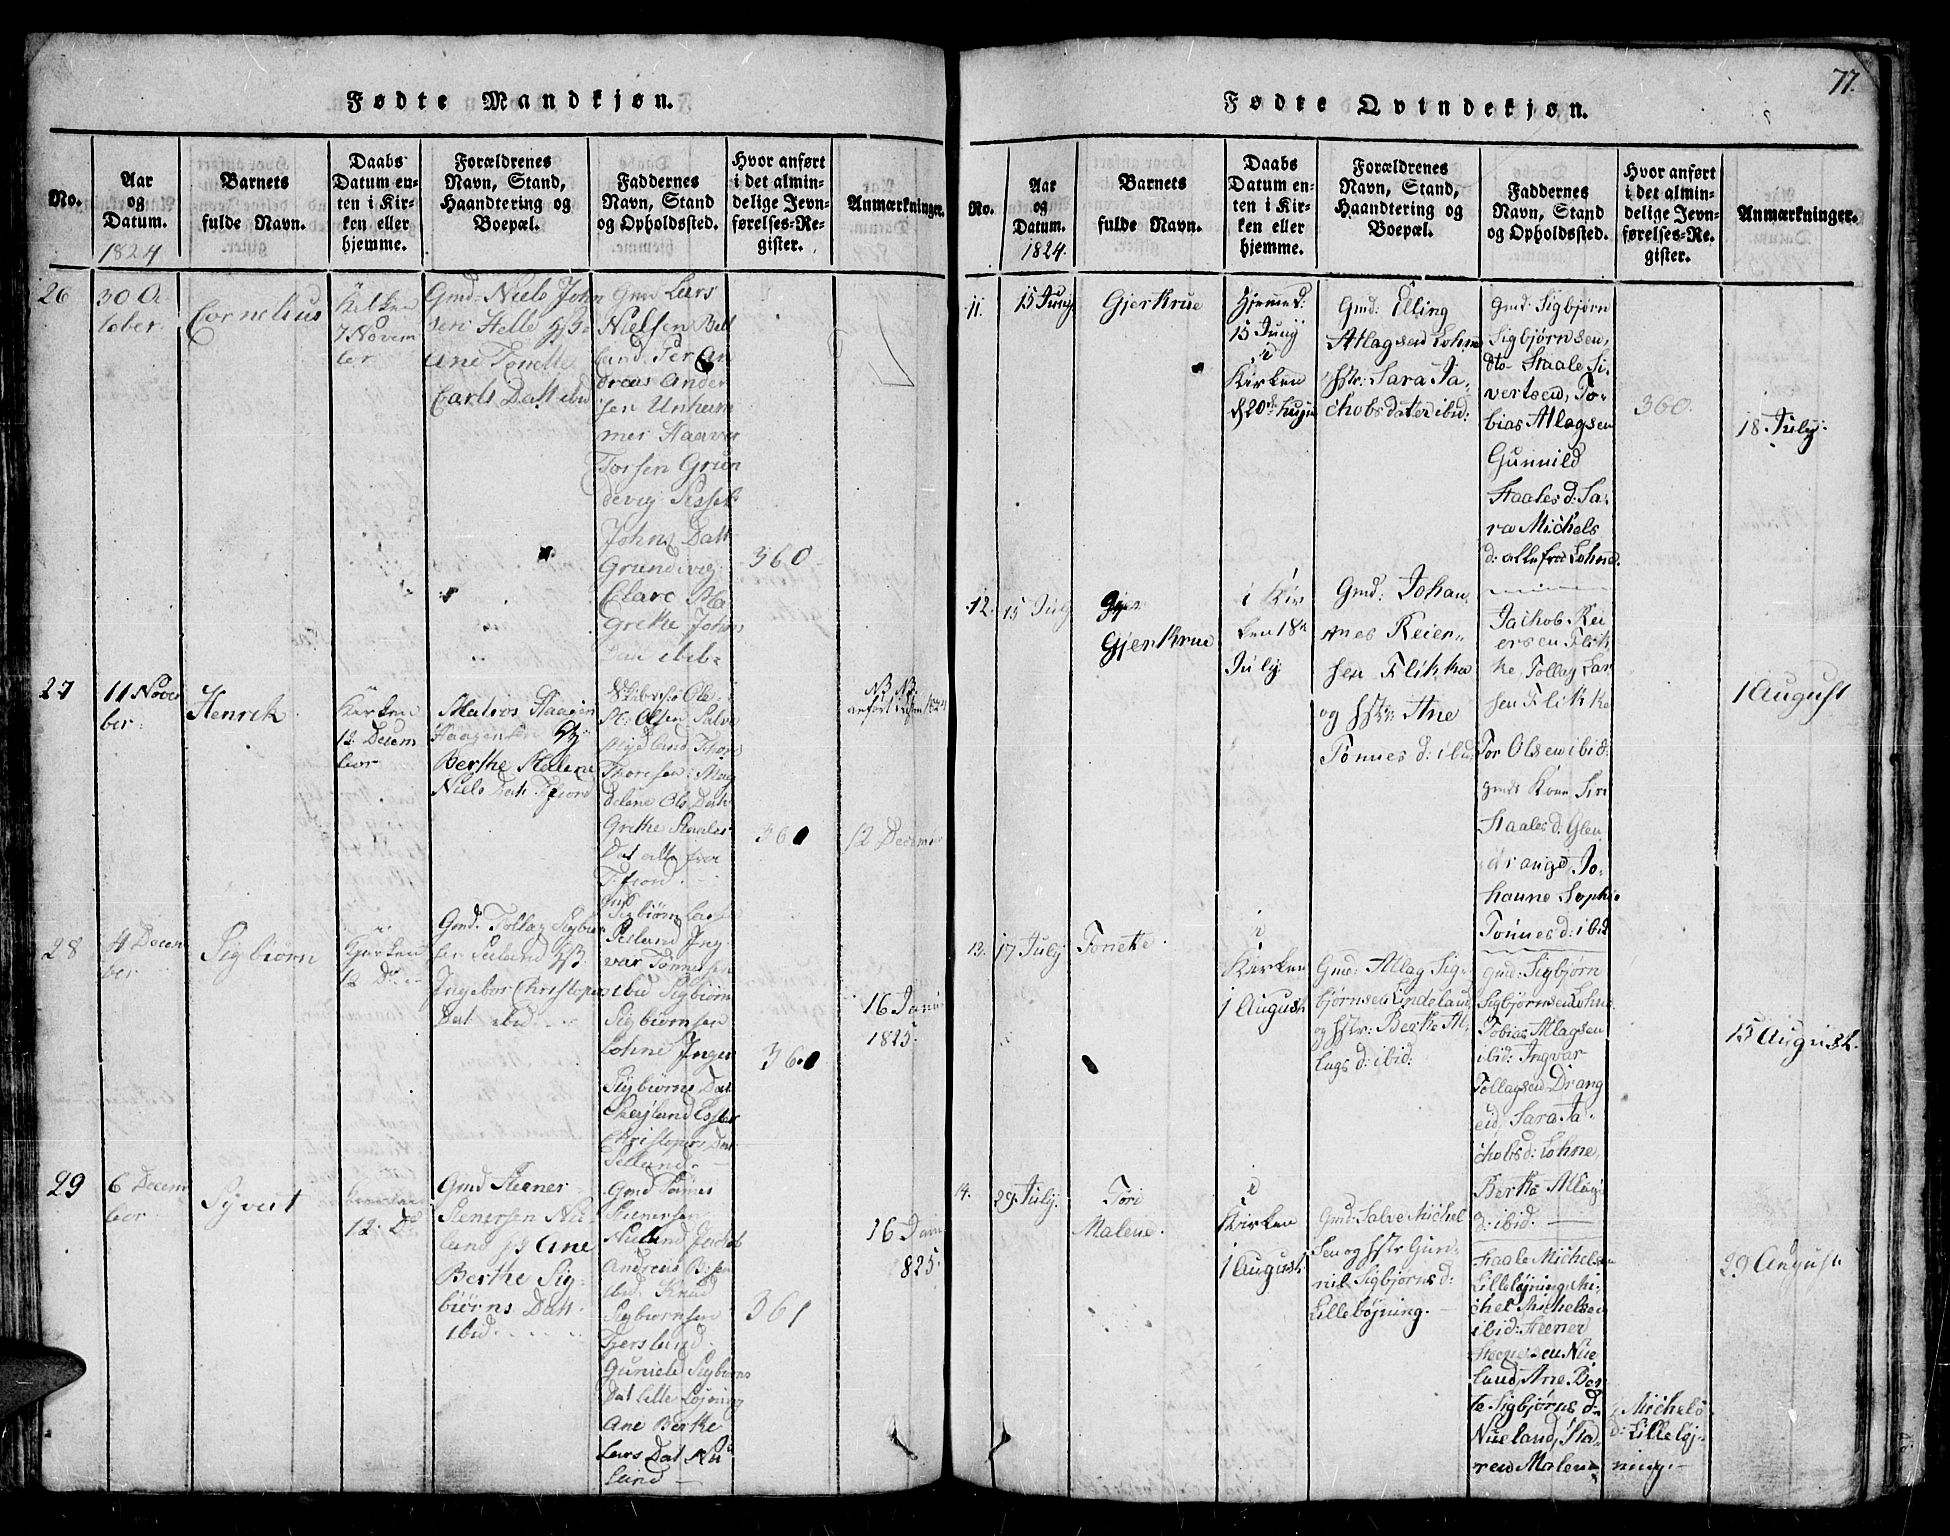 Fødte Mandkjøn.
No.
Aar
og
Datum.
1824
Barnets
fulde Navn.
Daabs
Datum en-
ten i Kir-
ken eller
hjemme.
Forældrenes
Navn, Stand,
Haandtering og
Boepæl.
Faddernes
Navn, Stand
og Opholdssted.
Hvor anført
i det almin-
delige Jevn-
førelses-Re-
gister.
Anmærkninger.
26
30 Oc
tober
Cornelius
Kirken
7 Novem
ber
Gmd: Niels John
sen Helle
Ane Tonette
Carls Datt ibid
Gmd Lars
Nielsen
land Per An
dreas Ander
sen Unhum
mer Haaver
Torsen Grun
devig Sissel
Johns Datt
Grundevig
Clare Ma
grethe Johns
Datt ibid
360
27
11 Novem
ber
Henrik
Kirken
12 Decem
ber
Matros Haagen
Haagensen
Berthe Malene
Niels Datt Fiord
Ole
Olsen Salve
Midland Thor
Thoresen
delene Ols Datt
Grethe Staales
Dat alle fra
360
12 Decem
28
4 Decem
ber
Sigbiørn
i
Kirken
12 D
Gmd: Tollag Sigbiør
sen Seeland
Ingebor Christophers
Dat ibid
Gmd
Sigbiørn Lars
Seeland Ing
var Tønnesen
ibid Sigbiørn
Sigbiørnsen
Lohne Inger
Sigbiørns Dat
Skeyland Ester
Christophers Dat
Selland
360
16 Janu
1825.
29
6 Decem
ber
Syvert
12 D
Gmd Steener
Stenersen Nu
land Ane
Berthe Sig-
biørns Datt
ibid
Gmd Tønnes
Steenersen
Nuland Jacob
Andreas
ibid Knud
Sigbiørnsen
Tjersland
Guniele Sigbiørns
Dat Lille Løjning
Ane Berthe
Lars Dat Nu
land
361
16 Janu
1825.
77.
Fødte Qvindekjøn.
No.
Aar
og
Datum.
1824.
Barnets
fulde Navn.
Daabs
Datum en-
ten i Kir-
ken eller
hjemme.
Forældrenes
Navn, Stand,
Haandtering og
Boepæl.
Faddernes
Navn, Stand
og Opholdssted.
Hvor anført
i det almin-
delige Jevn-
førelses-Re-
gister.
Anmærkninger.
11.
15 Juny
Gjerthrue
Hjemme d:
15 Junij
i
Kirken
d 20
Gmd: Elling
Atlagsen Lohne
Hstr: Sara Ja-
chobsdater ibid:
Gmd: Sigbjørn
Sigbjørnsen,
dto Staale Si-
vertsen, To-
bias Atlagsen
Gunnild
Staales d: Sa-
ra Michels
d: alle fra Lohne.
360.
18 July.
12.
15 July
Gjerthrue
i Kir
ken 18
July
Gmd: Johan
nes Reier-
sen Flikka
og Hstr: Ane
Tønnes d: ibid
Jachob Rei
ersen Flik
ke, Tollag Lar
sen Flikke
Tor Olsen ibid:
gmds Kone Siri
Staales d: Glen
drange, Jo-
hanne Sophie
Tønnes d: ibid
1 August
13.
17 July
Tonette.
i
Kirken
1 August
Gmd: Atlag Sig-
bjørnsen Lindeland
og Hstr: Berthe At-
lags d: ibid:
Gmd: Sigbjørn
Sigbjørnsen Lohne
Tobias Atlagsen
ibid: Ingvar
Tollagsen Drang
eid, Sara Ja-
chobs d: Lohne,
Berthe Atlags
d: ibid.
15 August.
14.
29 July.
Tori
Malene.
i
Kirken
1 August.
Gmd: Salve Michel
sen og Hstr Gun-
nil Sigbjørns d:
Lilleløjning.
Staale Michelsen
Lilleløjning, Mi-
chel Michelsen
ibid: Steener
Steenersen Nue
land, Ane Ber
te Sigbjørns d:
Nueland,
ren Malene
Michels
d: Lilleløj-
ning.
29 August